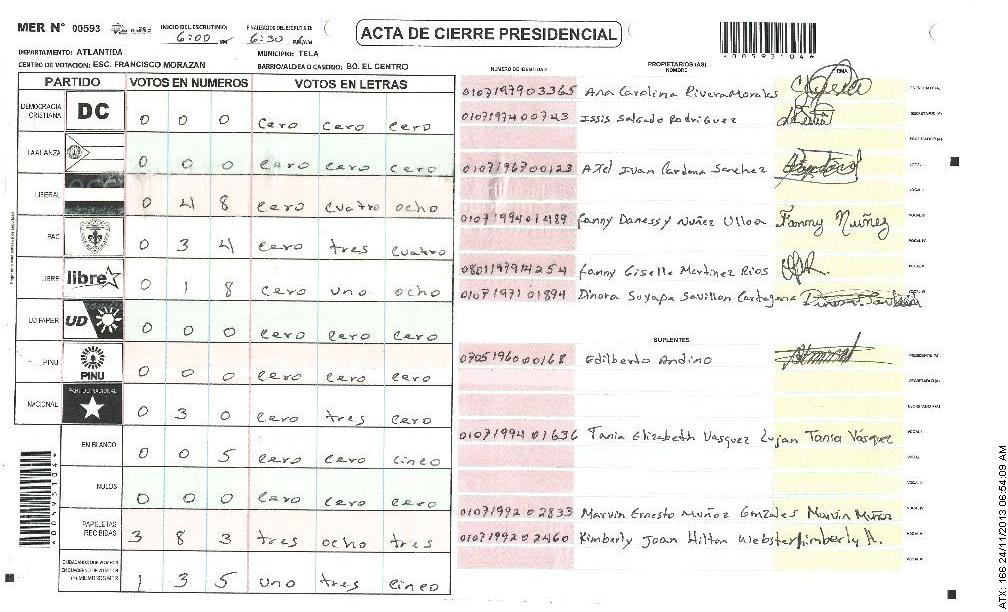 MER Nº 00593
INICIO DEL ESCRUTINIO: 6:00
FINALIZACION DEL ESCRUTINIO: 6:30
ACTA DE CIERRE PRESIDENCIAL
*00593104*
DEPARTAMENTO: ATLANTIDA
MUNICIPIO: TELA
CENTRO DE VOTACION: ESC. FRANCISCO MORAZAN
BARRIO/ALDEA O CASERIO: BO. EL CENTRO
PARTIDO VOTOS EN NUMEROS VOTOS EN LETRAS
DEMOCRACIA CRISTIANA DC 0 0 0 cero cero cero
LA ALIANZA 0 0 0 cero cero cero
LIBERAL 0 4 8 cero cuatro ocho
PAC 0 3 4 cero tres cuatro
LIBRE libre 0 1 8 cero uno ocho
UD FAPER UD 0 0 0 cero cero cero
PINU PINU 0 0 0 cero cero cero
NACIONAL PARTIDO NACIONAL 0 3 0 cero tres cero
EN BLANCO 0 0 5 cero cero cinco
NULOS 0 0 0 cero cero cero
PAPELETAS RECIBIDAS 3 8 3 tres ocho tres
1 3 5 uno tres cinco
*00593104*
NUMERO DE IDENTIDAD PROPIETARIOS (AS) NOMBRE FIRMA
0107197903365 Ana Carolina Rivera Morales
0107197400743 Issis Salgado Rodriguez
0107196700123 Axel Ivan Cardona Sanchez
0107199401489 Fanny Danessy Nuñez Ulloa Fanny Nuñez
0801197914254 Fanny Giselle Martinez Rios
0107197101894 Dinora Suyapa Savillon Cartagena
SUPLENTES
0705196000168 Edilberto Andino
0107199401636 Tania Elizabeth Vasquez Lujan Tania Vásquez
0107199202833 Marvin Ernesto Muñoz Gonzales Marvin Muñoz
0107199202460 Kimberly Joan Hilton Webster Kimberly H.
ATX: 166 24/11/2013 06:54:09 AM